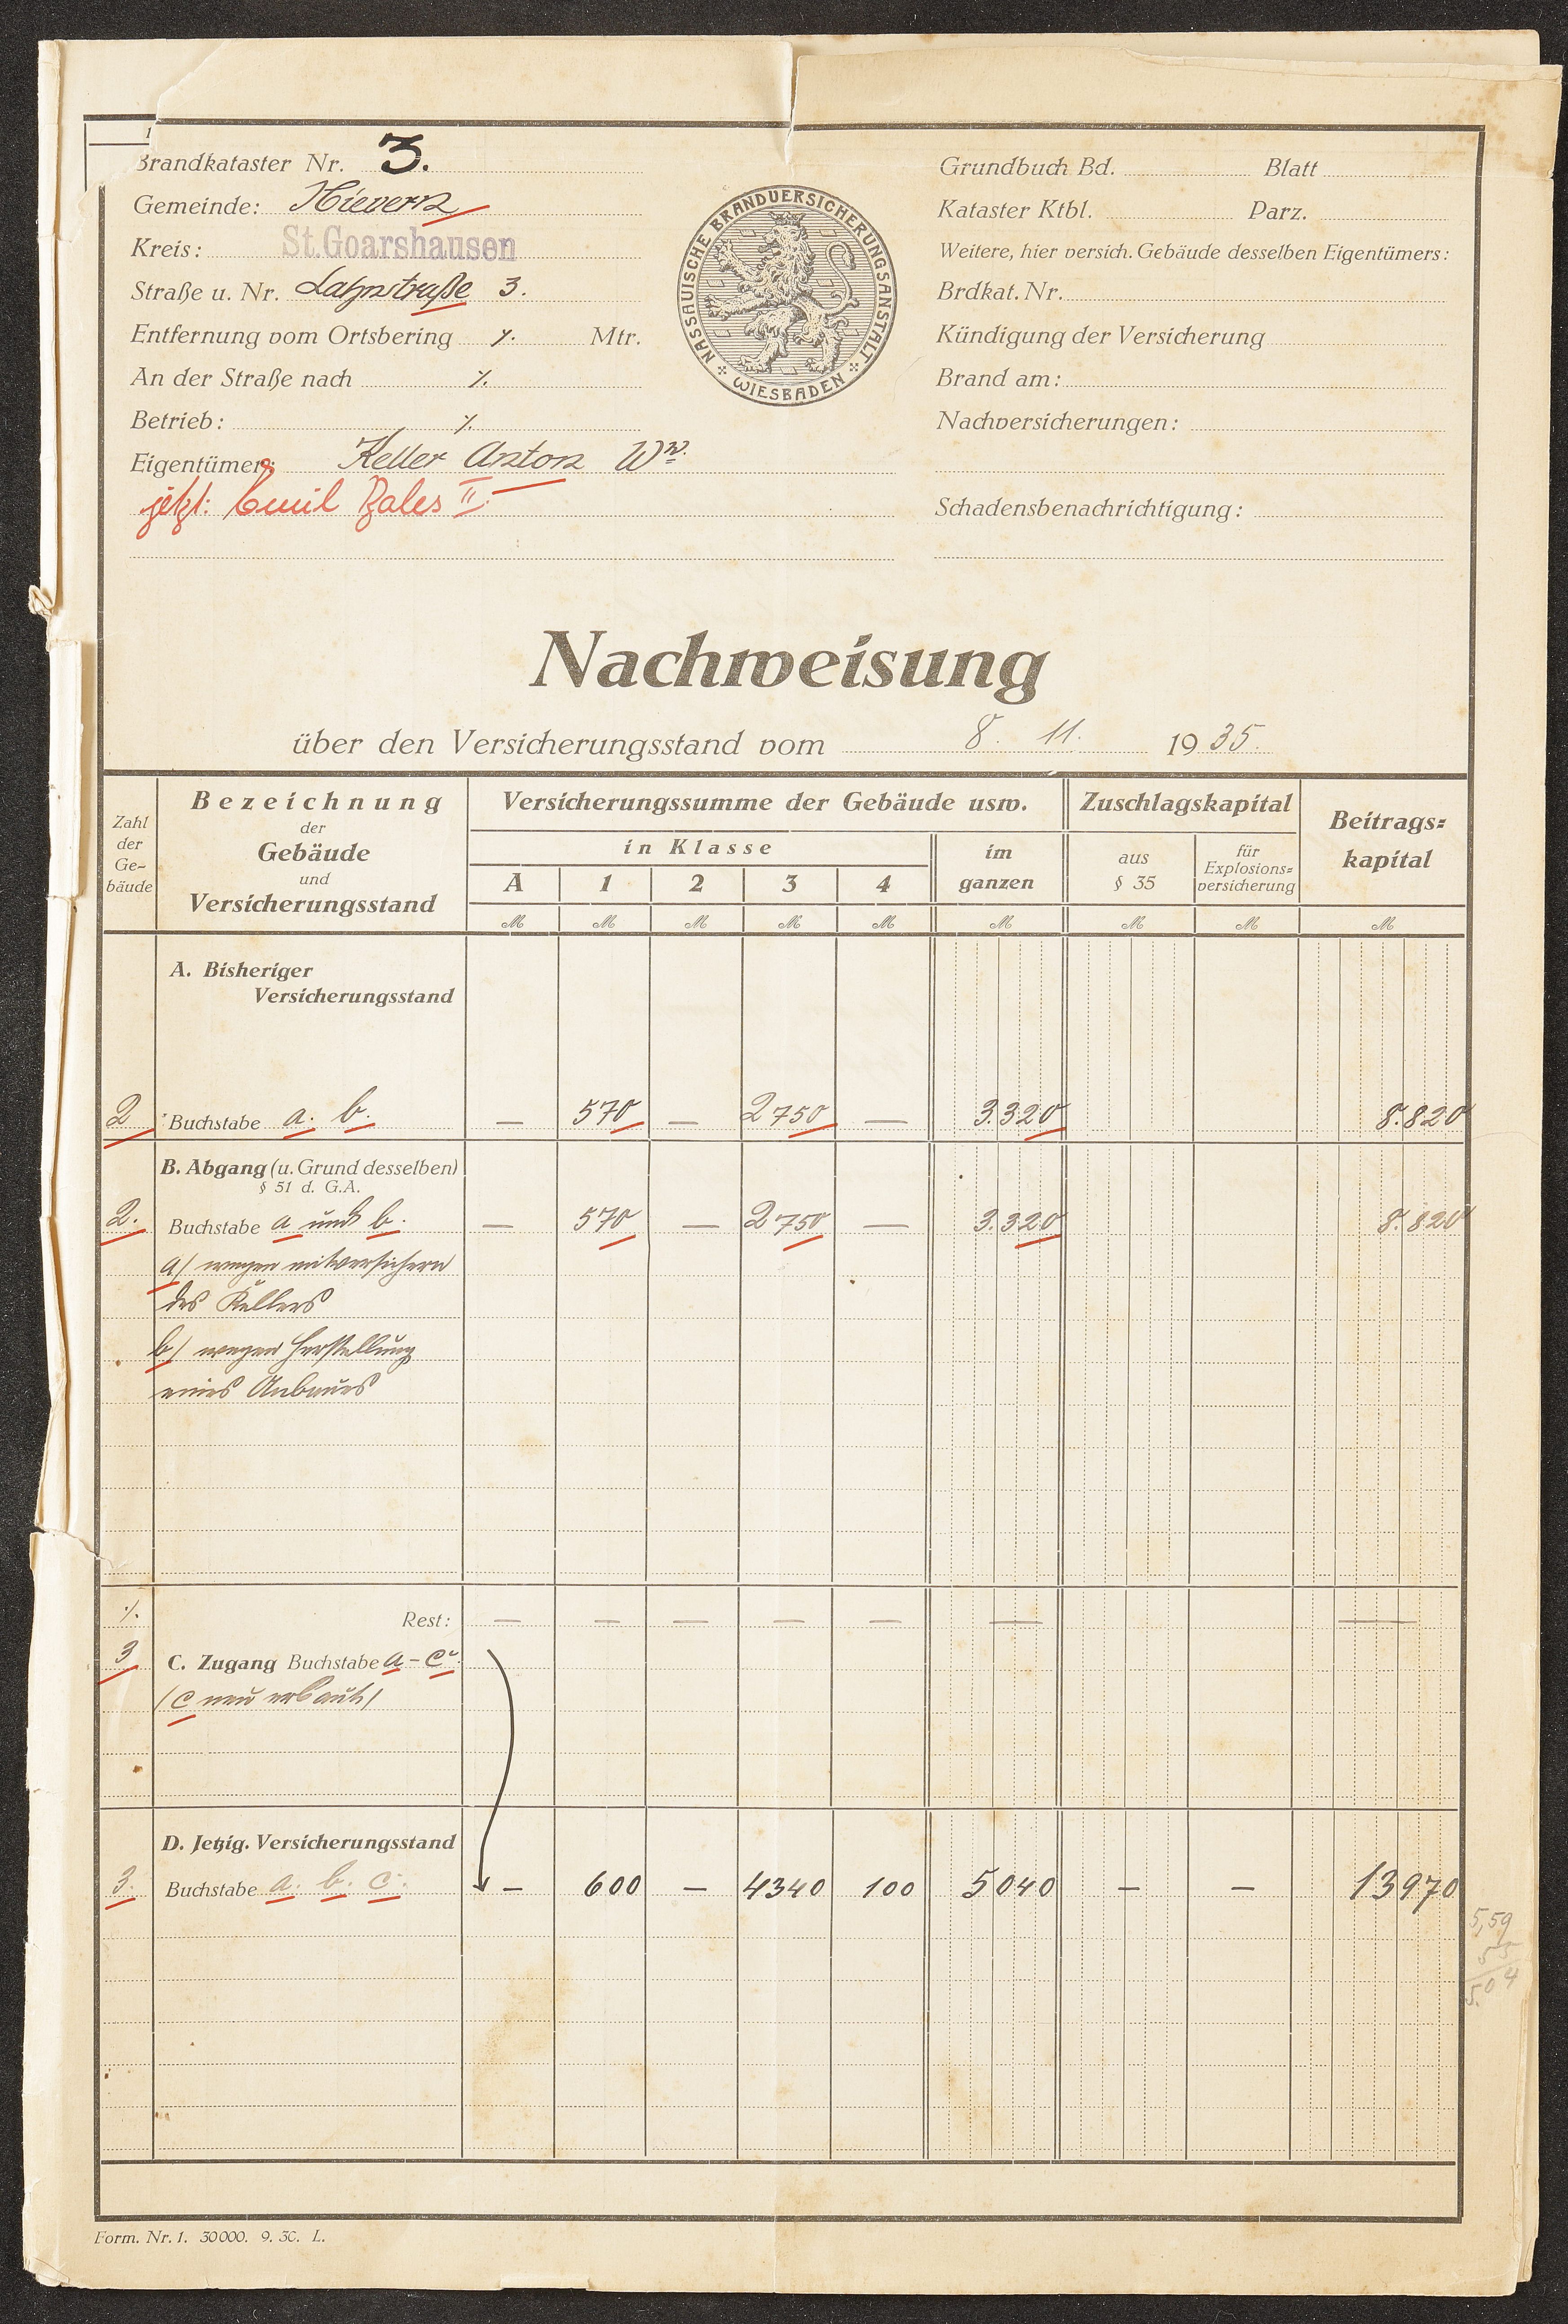 Brandkataster Nr. 3.
Gemeinde: Nievern
Kreis: St. Goarshausen
Straße u. Nr. Lahnstraße 3.
Entfernung vom Ortsbering ./. Mtr.
An der Straße nach ./.
Betrieb: ./.
Eigentümer: Keller Anton Ww.
jetzt: Emil Bales II.
NASSAUISCHE BRANDVERSICHERUNGSANSTALT
WIESBADEN
Grundbuch Bd. Blatt
Kataster Ktbl. Parz.
Weitere, hier versich. Gebäude desselben Eigentümers:
Brdkat. Nr.
Kündigung der Versicherung
Brand am:
Nachversicherungen:
Schadensbenachrichtigung:
Nachweisung
über den Versicherungsstand vom 8. 11. 1935.
Zahl der Ge-bäude
Bezeichnung der Gebäude und Versicherungsstand
Versicherungssumme der Gebäude usw.
Zuschlagskapital
Beitrags-kapital
in Klasse
im ganzen
aus § 35
für Explosions-versicherung
A 1 2 3 4
M M M M M M M M M
A. Bisheriger
Versicherungsstand
2 Buchstabe a. b. — 570 — 2750 — 3.320 8.820
B. Abgang (u. Grund desselben)
§ 51 d. G.A.
2. Buchstabe a und b. — 570 — 2750 — 3.320 8.820
a/ wegen mitversichern
des Kellers
b/ wegen Herstellung
eines Anbaues
./. Rest: — — — — — — —
3 C. Zugang Buchstabe a-c.
/c neu erbaut/
D. Jetzig. Versicherungsstand
3. Buchstabe a. b. c. — 600 — 4340 100 5040 — — 13970
5,59
55
5.04
Form. Nr. 1. 30000. 9. 30. L.